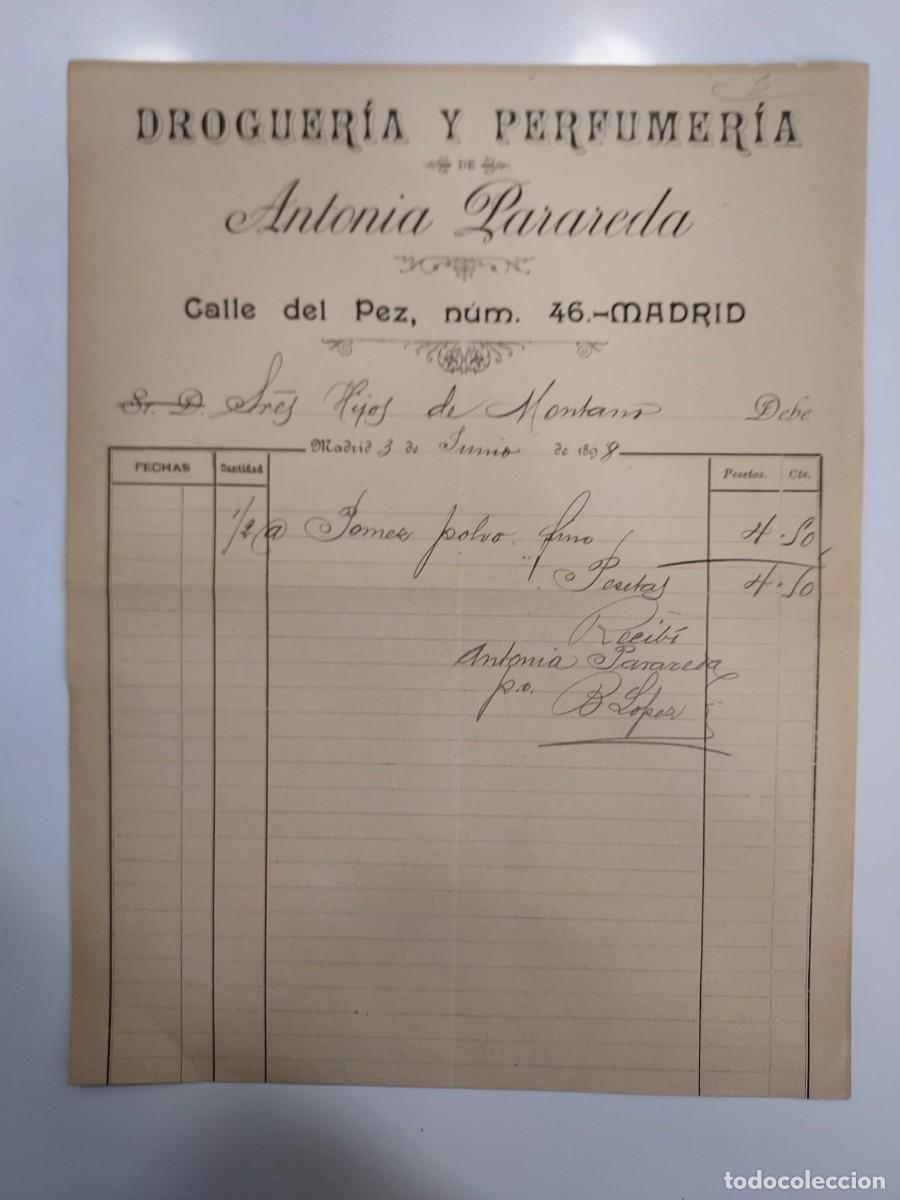 DROGUERÍA Y PERFUMERÍA
DE
Antonia Parareda
Calle del Pez, núm. 46.-MADRID
Sr. D. Sres Hijos de Montano Debe
Madrid 3 de Junio de 1898
FECHAS Cantidad Pesetas. Cts.
1/2 @ Pomez polvo fino 4.50
Pesetas 4.50
Recibí
Antonia Parareda
p.o. B Lopez
todocoleccion